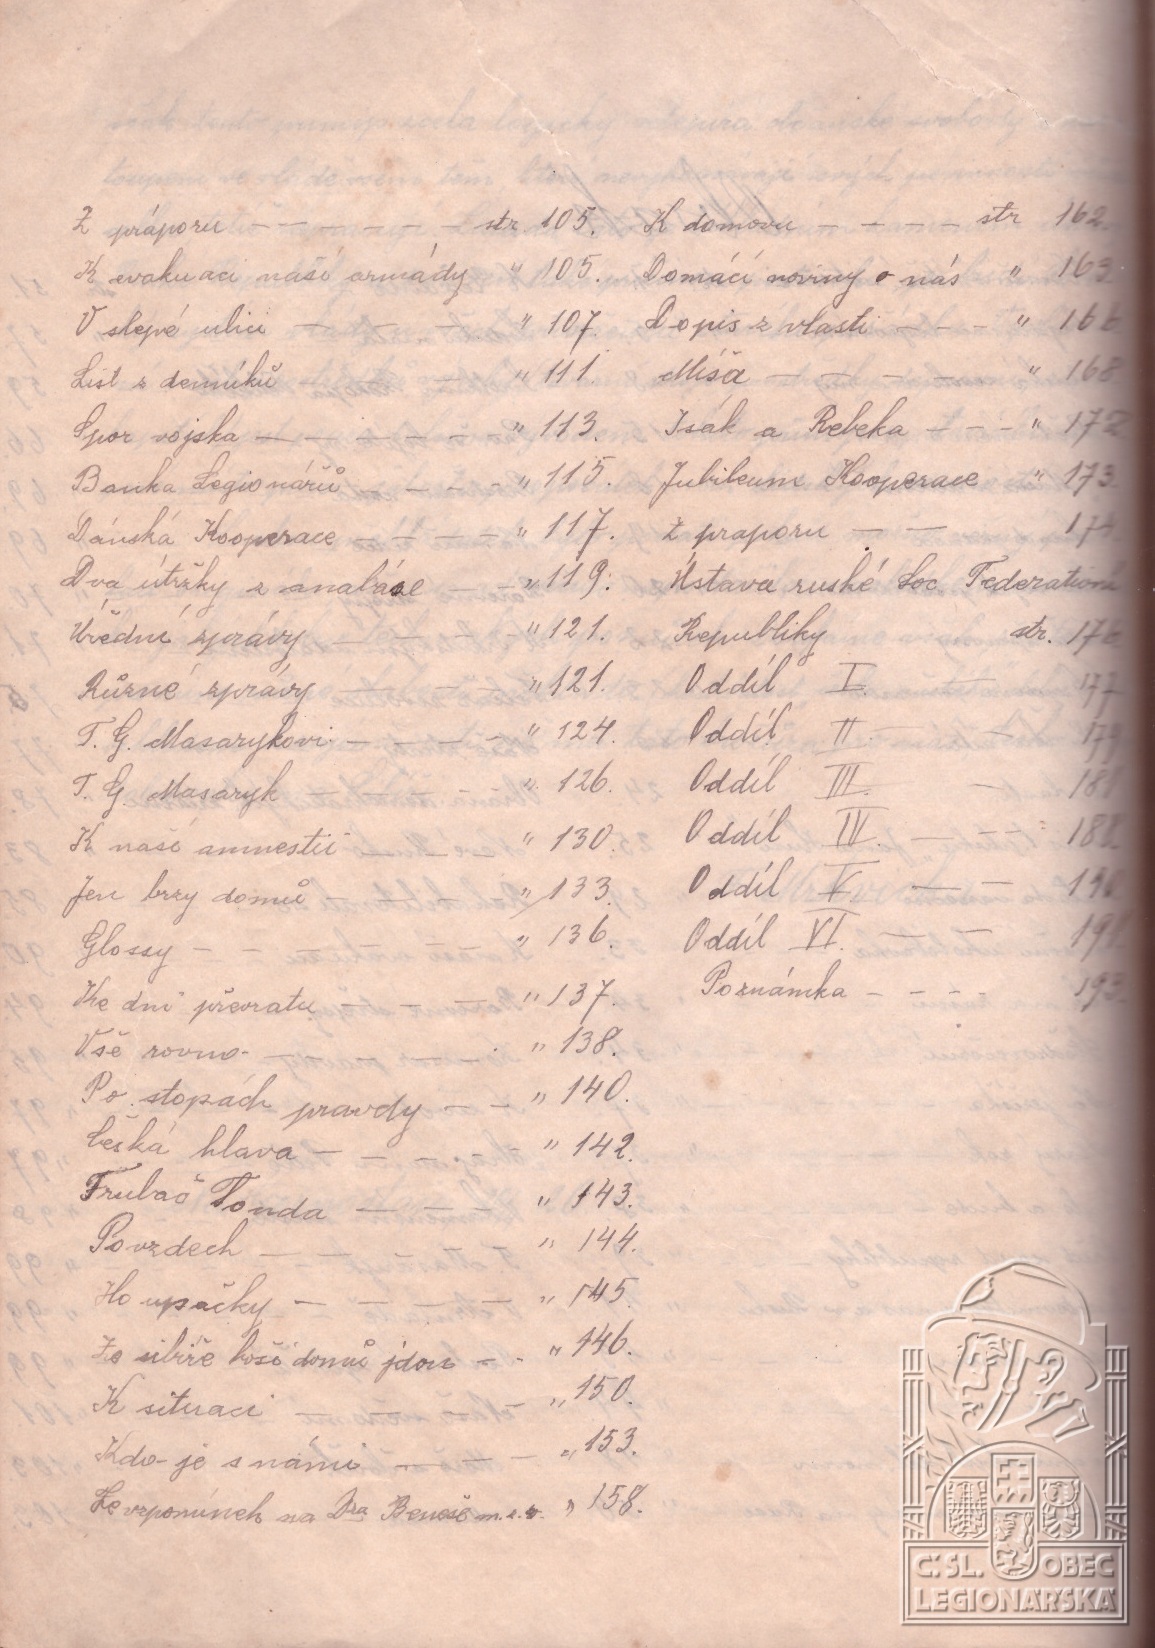 Z práporu — — — — — str 105.
K evakuaci naší armády " 105.
V slepé ulici — — — — " 107.
List z denníků — — — — " 111.
Spor vojska — — — — — " 113.
Banka Legionářů — — — — " 115.
Dánská Kooperace — — — — " 117.
Dva útržky z anabáse — — " 119.
Úřední zprávy — — — — " 121.
Různé zprávy — — — — " 121.
T. G. Masarykovi — — — — " 124.
T. G. Masaryk — — — — " 126.
K naší amnestii — — — — " 130.
Jen brzy domů — — — — " 133.
Glossy — — — — — — " 136.
Ke dni převratu — — — — " 137.
Vše rovno — — — " 138.
Po stopách pravdy — — " 140.
Češká hlava — — — — " 142.
Trubač Tonda — — — — " 143.
Povzdech — — — — — " 144.
Houpačky — — — — — " 145.
Ze sibiře hoši domů jdou — - " 146.
K situaci — — — — — " 150.
Kdo je s námi — — — — " 153.
Ze vzpomínek na Dra Beneše " 158.
K domovu — — — — str 162.
Domácí noviny o nás " 163
Dopis z vlasti — — — "
Míša — — — — — " 168
Isák a Rebeka — — — " 172
Jubileum Kooperace " 173.
Z praporu — — 174.
Ústava ruské Soc. Federativní
Republiky str.
Oddíl I. — 177
Oddíl II. — — 179
Oddíl III. —
Oddíl IV. — — — 188.
Oddíl V. — —
Oddíl VI. — —
Poznámka — — — — 193.
Č. SL. OBEC
LEGIONÁŘSKÁ